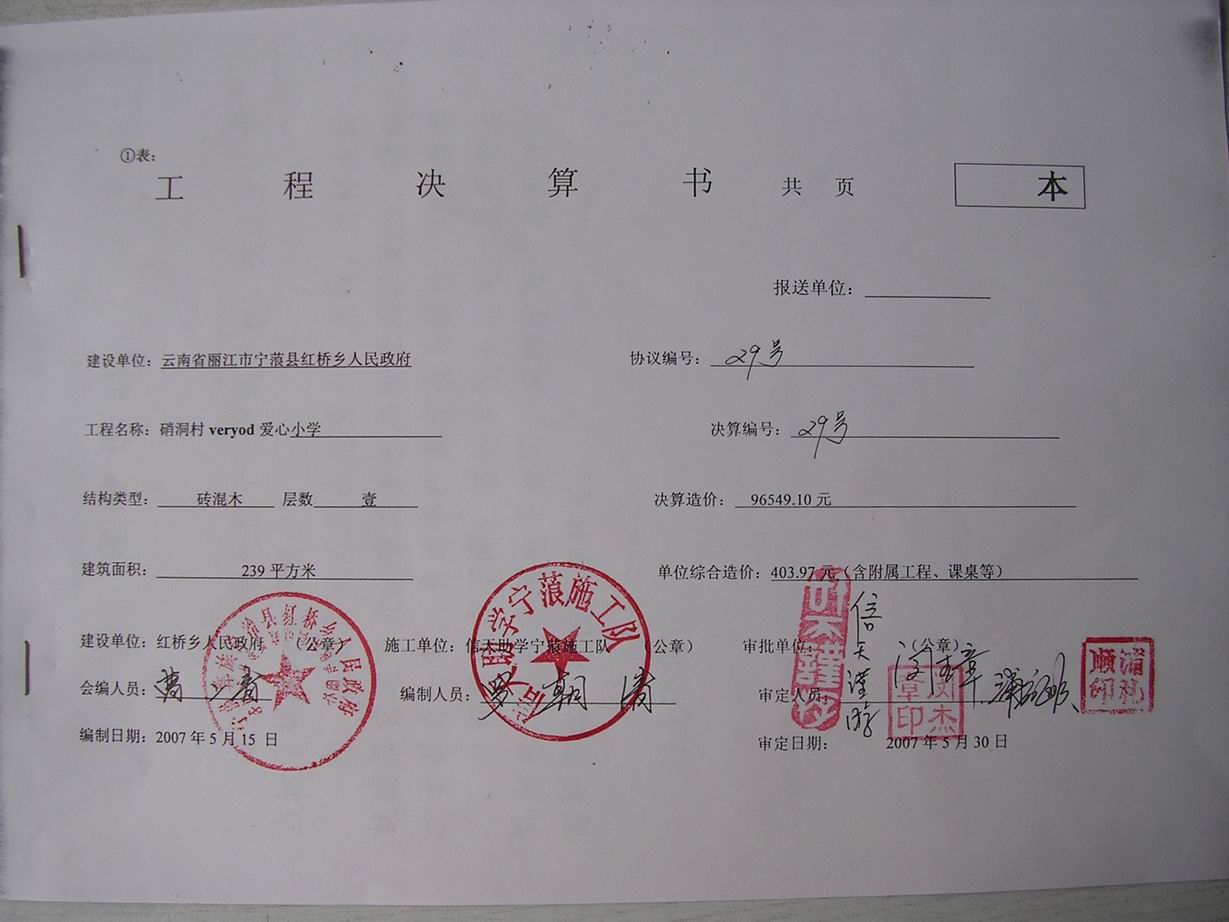 ①表：
工 程 决 算 书 共 页 本
报送单位：
建设单位：云南省丽江市宁蒗县红桥乡人民政府 协议编号：29号
工程名称：硝洞村 veryod 爱心小学 决算编号：29号
结构类型：砖混木 层数 壹 决算造价：96549.10 元
建筑面积：239 平方米 单位综合造价：403.97 元（含附属工程、课桌等）
建设单位：红桥乡人民政府 （公章） 施工单位：信天助学宁蒗施工队 （公章） 审批单位： （公章）
会编人员： 编制人员：罗朝清 审定人员：
编制日期：2007 年 5 月 15 日 审定日期： 2007 年 5 月 30 日